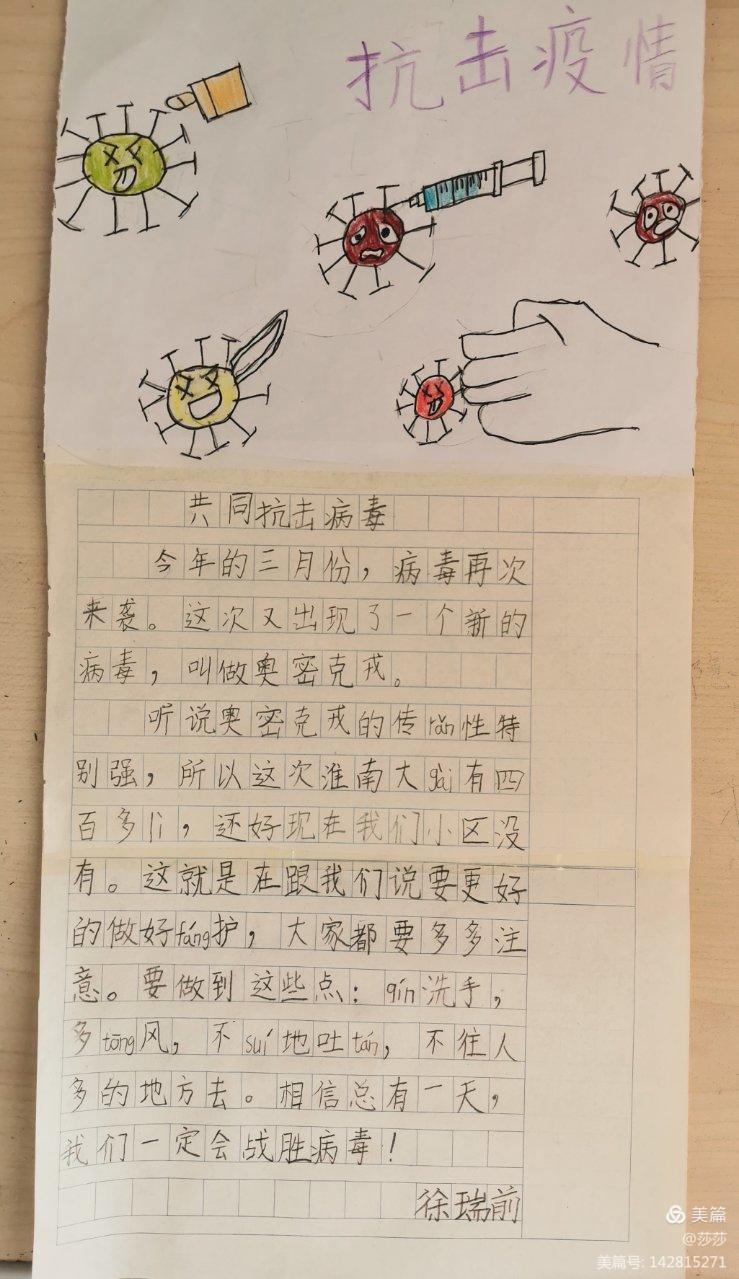 抗击疫情
共同抗击病毒
今年的三月份，病毒再次
来袭。这次又出现了一个新的
病毒，叫做奥密克戎。
听说奥密克戎的传rǎn性特
别强，所以这次淮南大gài有四
百多lì，还好现在我们小区没
有。这就是在跟我们说要更好
的做好fáng护，大家都要多多注
意。要做到这些点：qín洗手，
多tōng风，不suí地吐tán，不往人
多的地方去。相信总有一天，
我们一定会战胜病毒！
徐瑞前
美篇
@莎莎
美篇号: 142815271